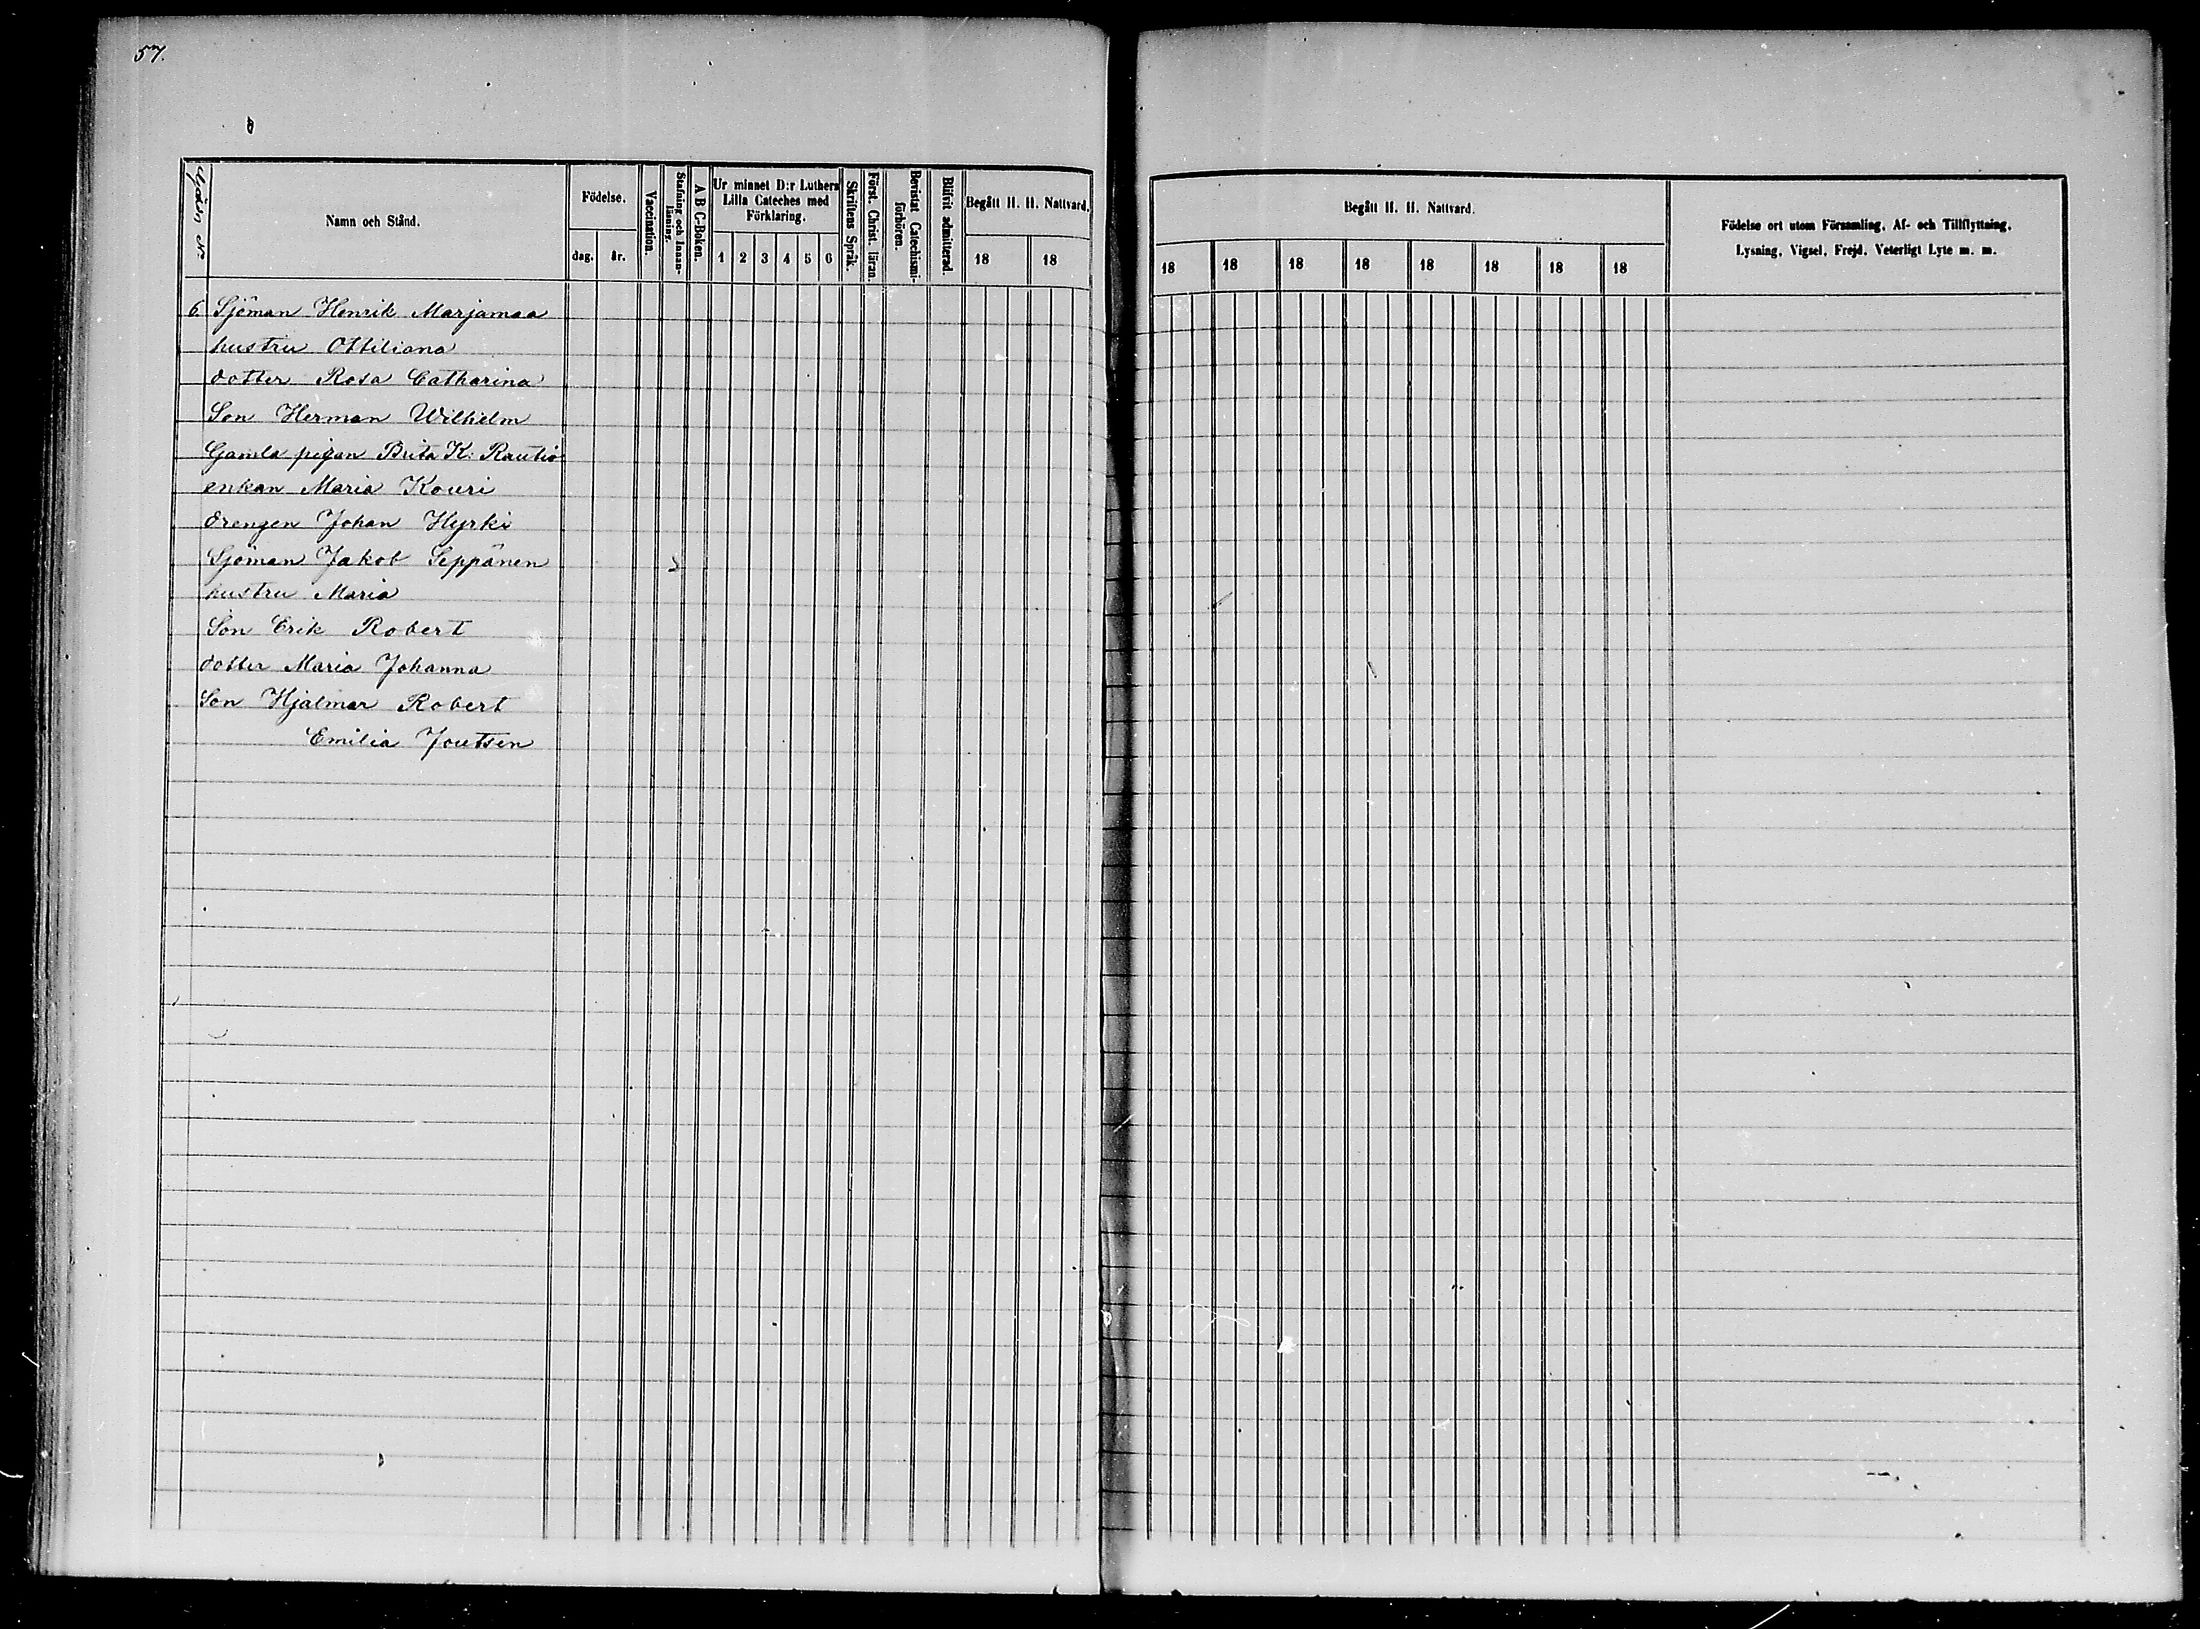 57.
Gård, No.
Namn och Stånd.
Födelse.
dag. år.
Vaccination.
Stafning och Innan-
läsning.
A B C-Boken.
Ur minnet D:r Luthers
Lilla Cateches med
Förklaring.
1 2 3 4 5 6
Skriftens Språk.
Först. Christ. läran.
Bevistat Catechismi-
förhören.
Blifvit admitterad.
Begått H. H. Nattvard.
18 18
6 Sjöman Henrik Marjamaa
hustru Ottiliana
dotter Rosa Catharina
Son Herman Wilhelm
Gamla pigan Brita K: Rautio
enkan Maria Kouri
drengen Johan Hyrki
Sjöman Jakob Seppänen
hustru Maria
Son Erik Robert
dotter Maria Johanna
Son Hjalmar Robert
Emilia Joutsen
Begått H. H. Nattvard.
18 18 18 18 18 18 18 18
Födelse ort utom Församling, Af- och Tillflyttning,
Lysning, Vigsel, Frejd, Veterligt Lyte m. m.